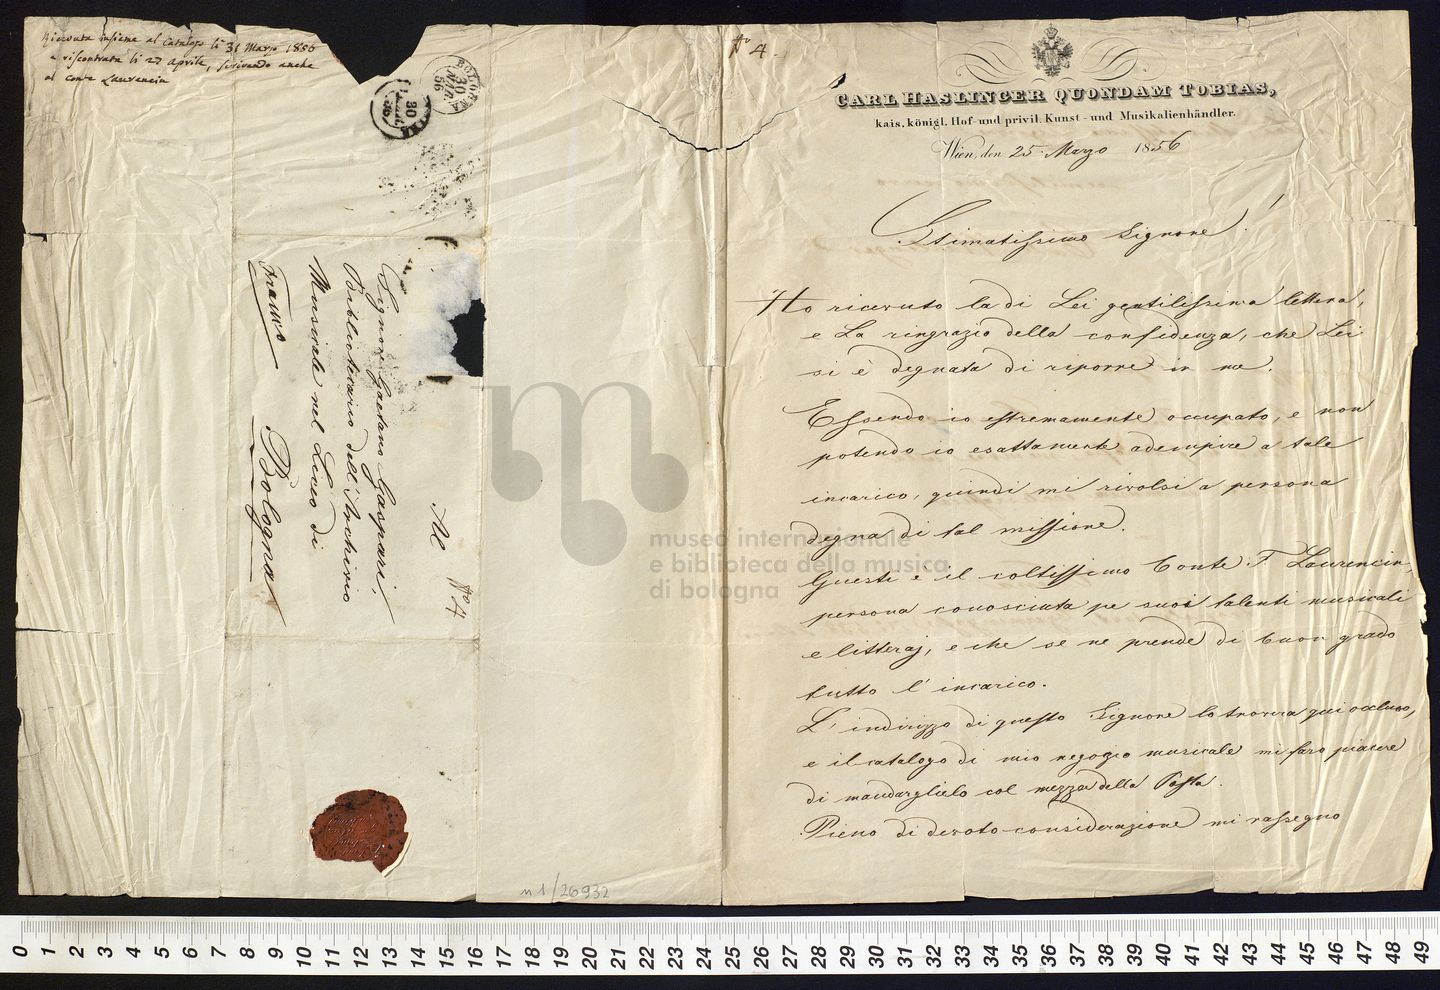 Ricevuta insieme al Catalogo li 31 Marzo 1856
e riscontrata li 27 Aprile, scrivendo anche
al conte Laurencin
BOLOGNA
30
MAR
56
30
56
Al
Signor Gaetano Gaspari,
Bibliotecario dell'Archivio
Musicale nel Liceo di
Bologna
Franco
N° 4
n 1/26932
N° 4.
CARL HASLINGER QUONDAM TOBIAS,
kais. königl. Hof- und privil. Kunst- und Musikalienhändler.
Wien, den 25. Marzo 1856
Stimatissimo Signore!
Ho ricevuto la di Lei gentilissima lettera,
e La ringrazio della confidenza, che Lei
si è degnata di riporre in me.
Essendo io estremamente occupato, e non
potendo io esattamente adempire a tale
incarico, quindi mi rivolsi a persona
degna di tal missione.
Questi è il coltissimo Conte F. Laurencin,
persona conosciuta pe suoi talenti musicali
e litteraj, e che se ne prende di buon grado
tutto l'incarico.
L'indirizzo di questo Signore lo troverà qui occluso,
e il catalogo di mio negozio musicale mi farò piacere
di mandarglielo col mezzo della Posta.
Pieno di devota considerazione mi rassegno
museo internazionale
e biblioteca della musica
di bologna
0 1 2 3 4 5 6 7 8 9 10 11 12 13 14 15 16 17 18 19 20 21 22 23 24 25 26 27 28 29 30 31 32 33 34 35 36 37 38 39 40 41 42 43 44 45 46 47 48 49